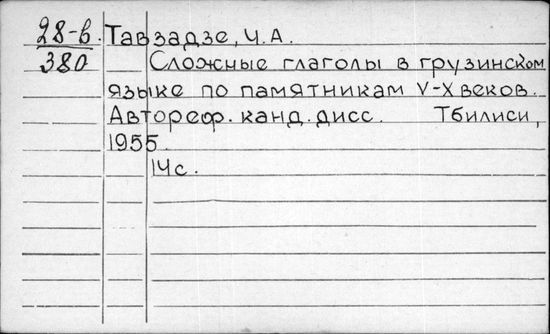 28-в. Тавзадзе, Ч.А.
380 Сложные глаголы в грузинском
языке по памятникам V-X веков.
Автореф. канд. дисс. Тбилиси,
1955.
14с.